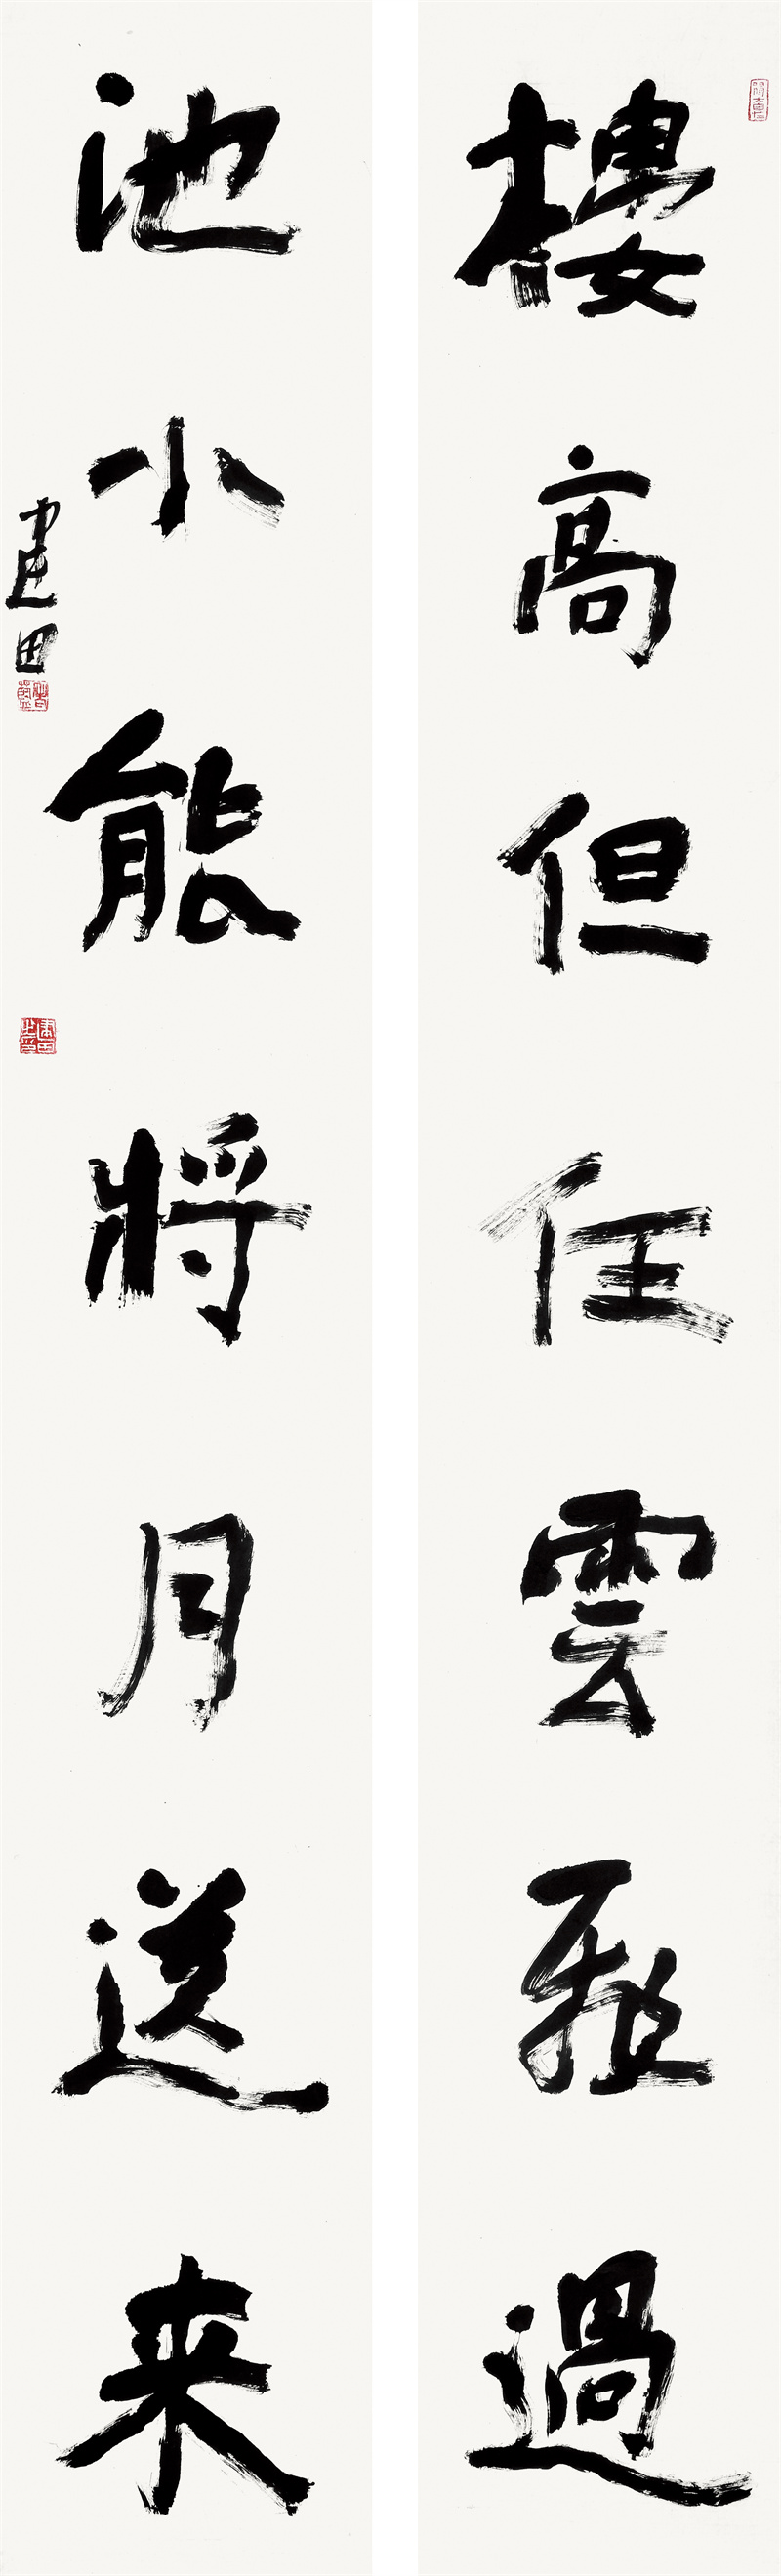 樓高但任雲飛過
池小能將月送来
建田